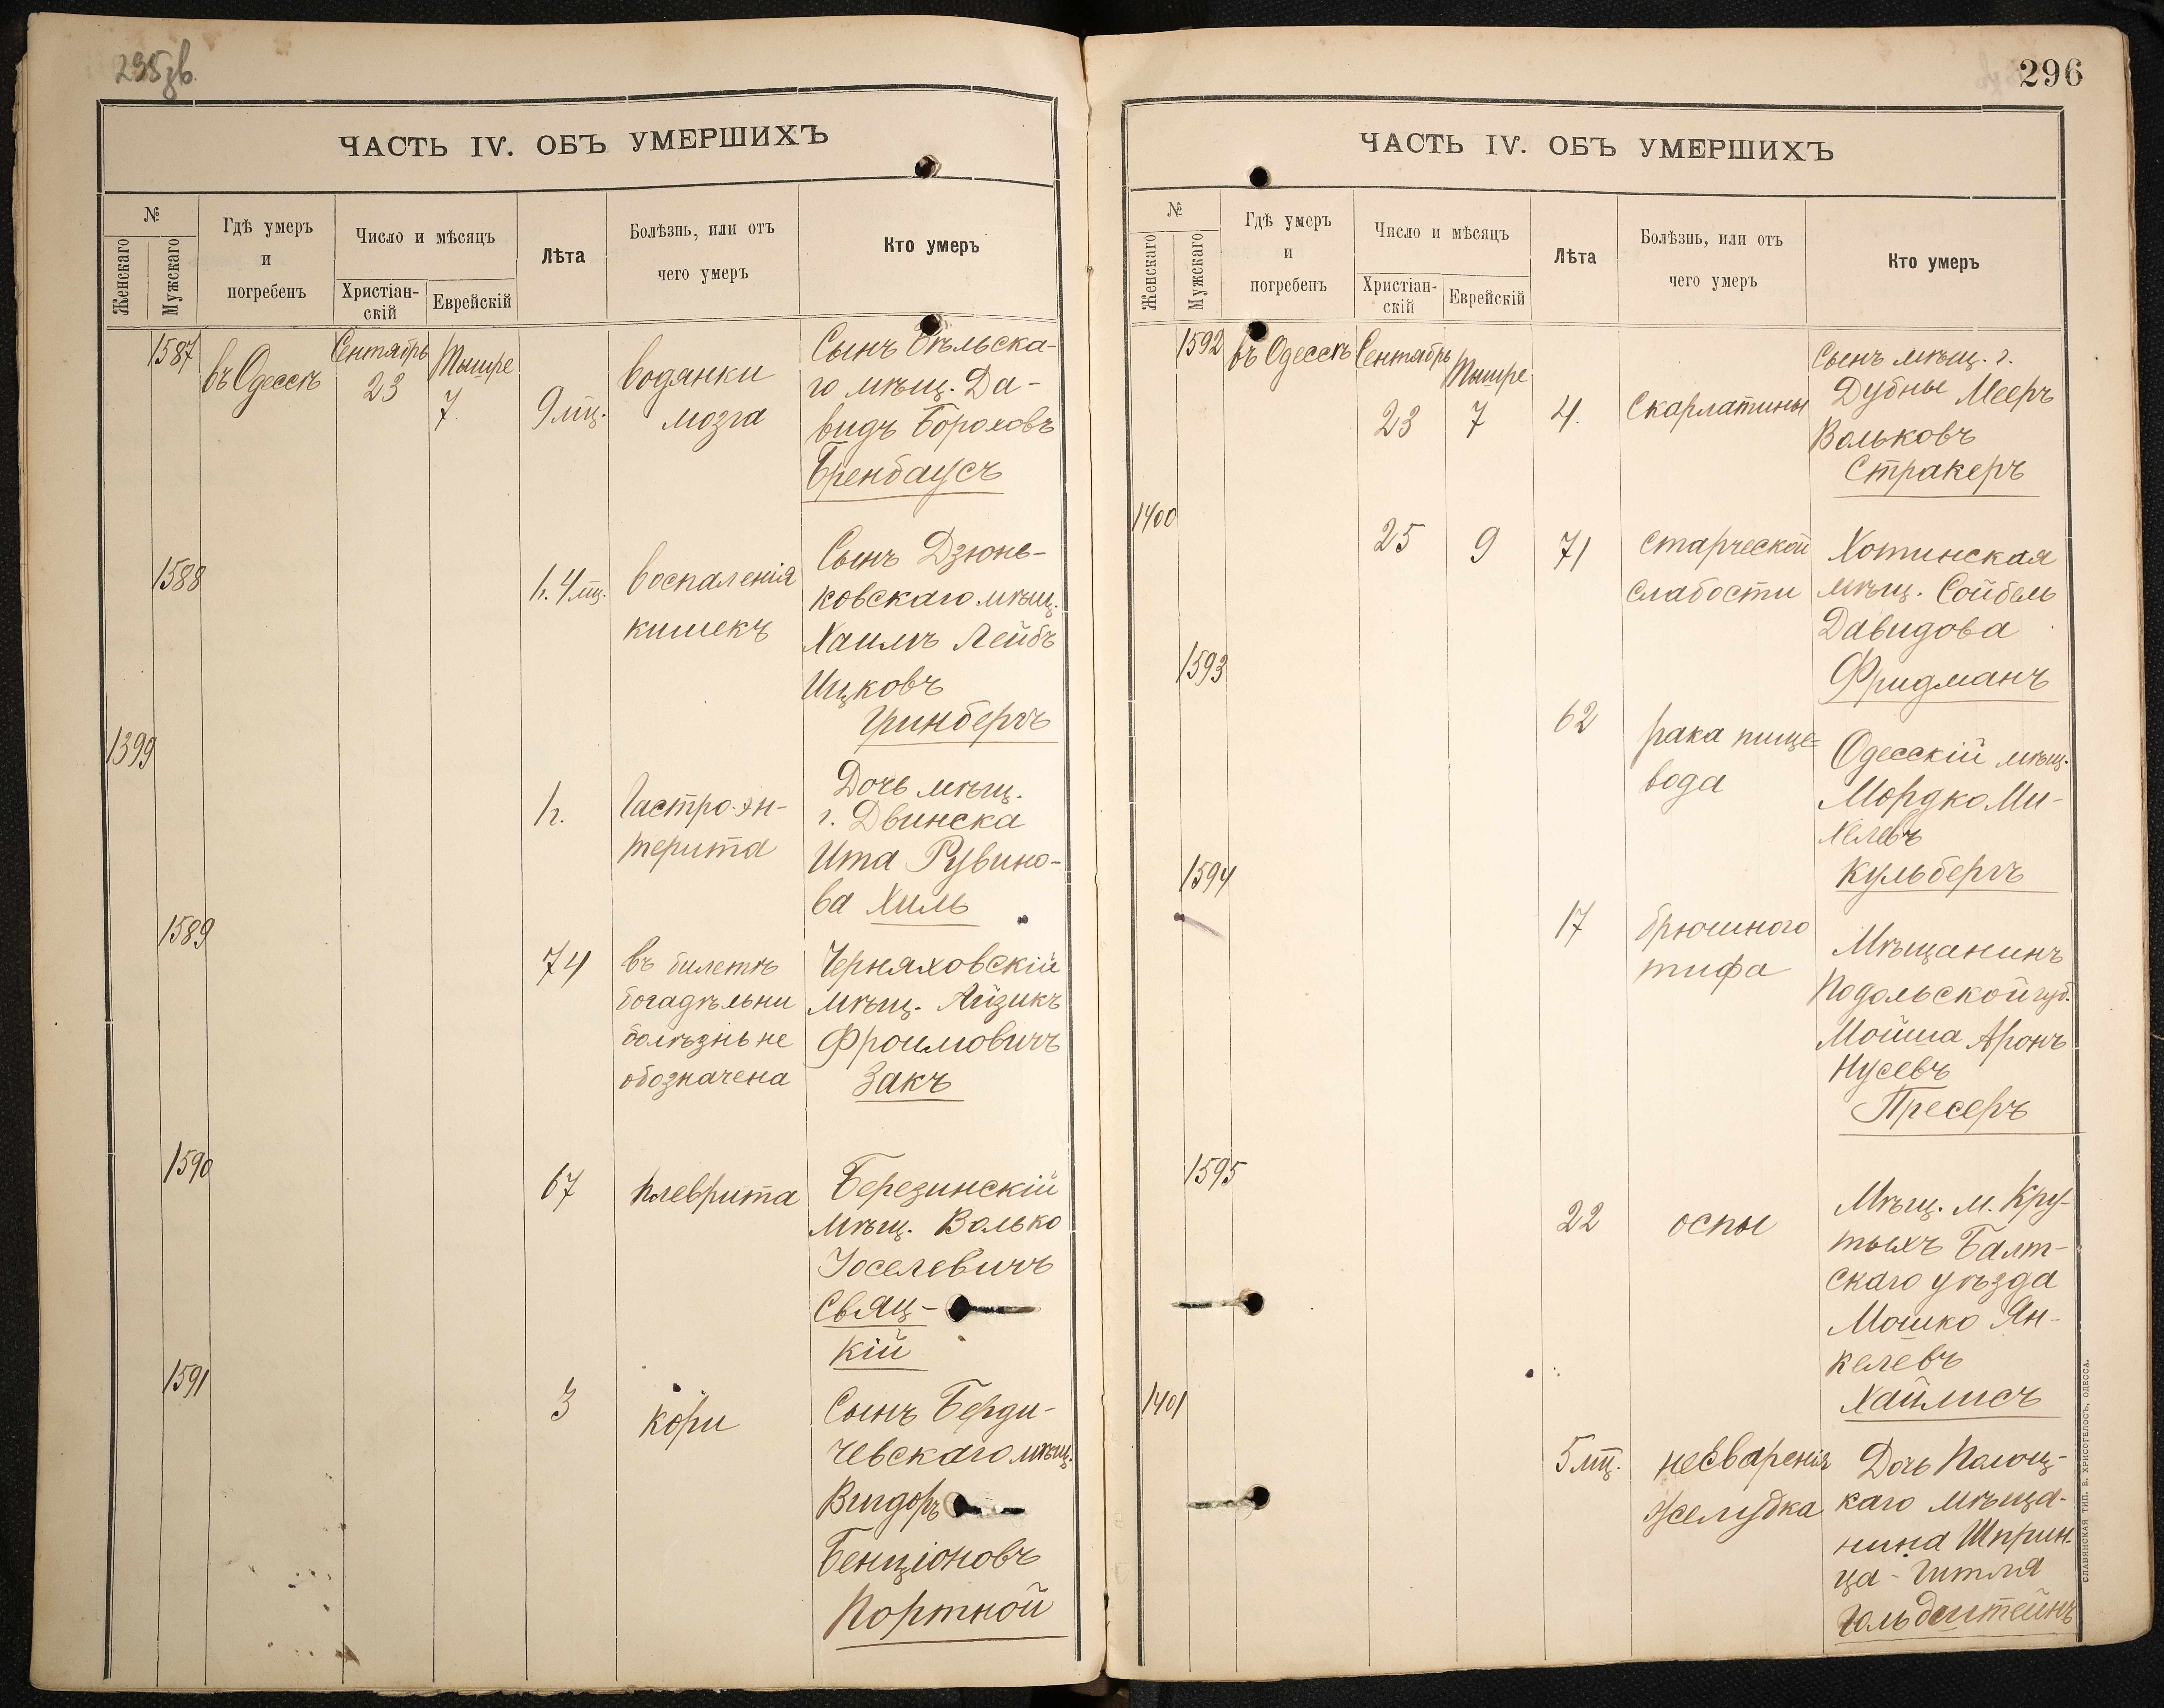 295зв.
ЧАСТЬ IV. ОБЪ УМЕРШИХЪ
№
Женскаго
Мужскаго
Гдѣ умеръ
и
погребенъ
Число и мѣсяцъ
Христіан-
скій
Еврейскій
Лѣта
Болѣзнь, или отъ
чего умеръ
Кто умеръ
1587
въ Одессѣ
Сентябрь
23
Тышре
7
9 мц.
водянки
мозга
Сынъ Бѣльска-
го мѣщ. Да-
видъ Бороховъ
Бренбаусъ
1588
1. 4 мц.
воспаленія
кишекъ
Сынъ Дзюнь-
ковскаго мѣщ.
Хаимъ Лейбъ
Ицковъ
Гринбергъ
1399
1.
Гастро-эн-
терита
Дочь мѣщ.
г. Двинска
Ита Рувино-
ва Хиль
1589
74
въ билетѣ
богадѣльни
болѣзнь не
обозначена
Черняховскій
мѣщ. Айзикъ
Фроимовичъ
Закъ
1590
67
плеврита
Березинскій
мѣщ. Волько
Іоселевичъ
Свяц-
кій
1591
3
кори
Сынъ Берди-
чевскаго мѣщ.
Вигдоръ
Бенціоновъ
Портной
296
ЧАСТЬ IV. ОБЪ УМЕРШИХЪ
№
Женскаго
Мужскаго
Гдѣ умеръ
и
погребенъ
Число и мѣсяцъ
Христіан-
скій
Еврейскій
Лѣта
Болѣзнь, или отъ
чего умеръ
Кто умеръ
1592
въ Одессѣ
Сентябрь
23
Тышре
7
4.
Скарлатины
Сынъ мѣщ. г.
Дубны Мееръ
Вольковъ
Стракеръ
1400
25
9
71
старческой
слабости
Хотинская
мѣщ. Сойбель
Давидова
Фридманъ
1593
62
рака пище=
вода
Одесскій мѣщ.
Мордко Ми-
хелевъ
Кульбергъ
1594
17
брюшного
тифа
Мѣщанинъ
Подольской губ.
Мойша Аронъ
Нусевъ
Пресеръ
1595
22
оспы
Мѣщ. м. Кру-
тыхъ Балт-
скаго уѣзда
Мошко Ян-
келевъ
Хайлисъ
1401
5 мц.
несваренія
желудка
Дочь Полоц-
каго мѣща-
нина Шприн-
ца-Гитля
Гольдштейнъ
СЛАВЯНСКАЯ ТИП. Е. ХРИСОГЕЛОСЪ, ОДЕССА.